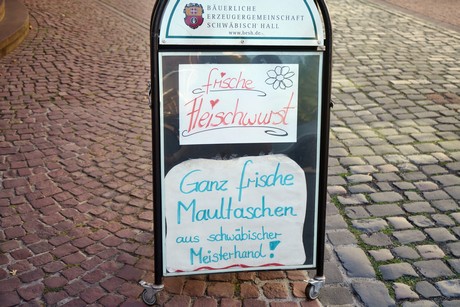 BÄUERLICHE
ERZEUGERGEMEINSCHAFT
SCHWÄBISCH HALL
www.besh.de
frische
Fleischwurst
Ganz frische
Maultaschen
aus schwäbischer
Meisterhand!